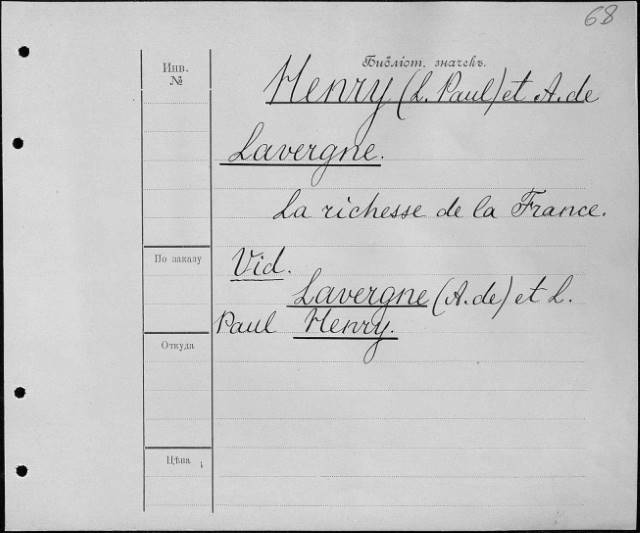 68
Инв.
№
Библіот. значекъ.
Henry (L. Paul) et A. de
Lavergne.
La richesse de la France.
По заказу
Vid.
Lavergne (A. de) et L.
Paul Henry.
Откуда
Цѣна